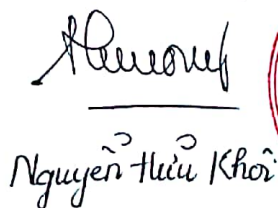 Nguyễn Hữu Khôi